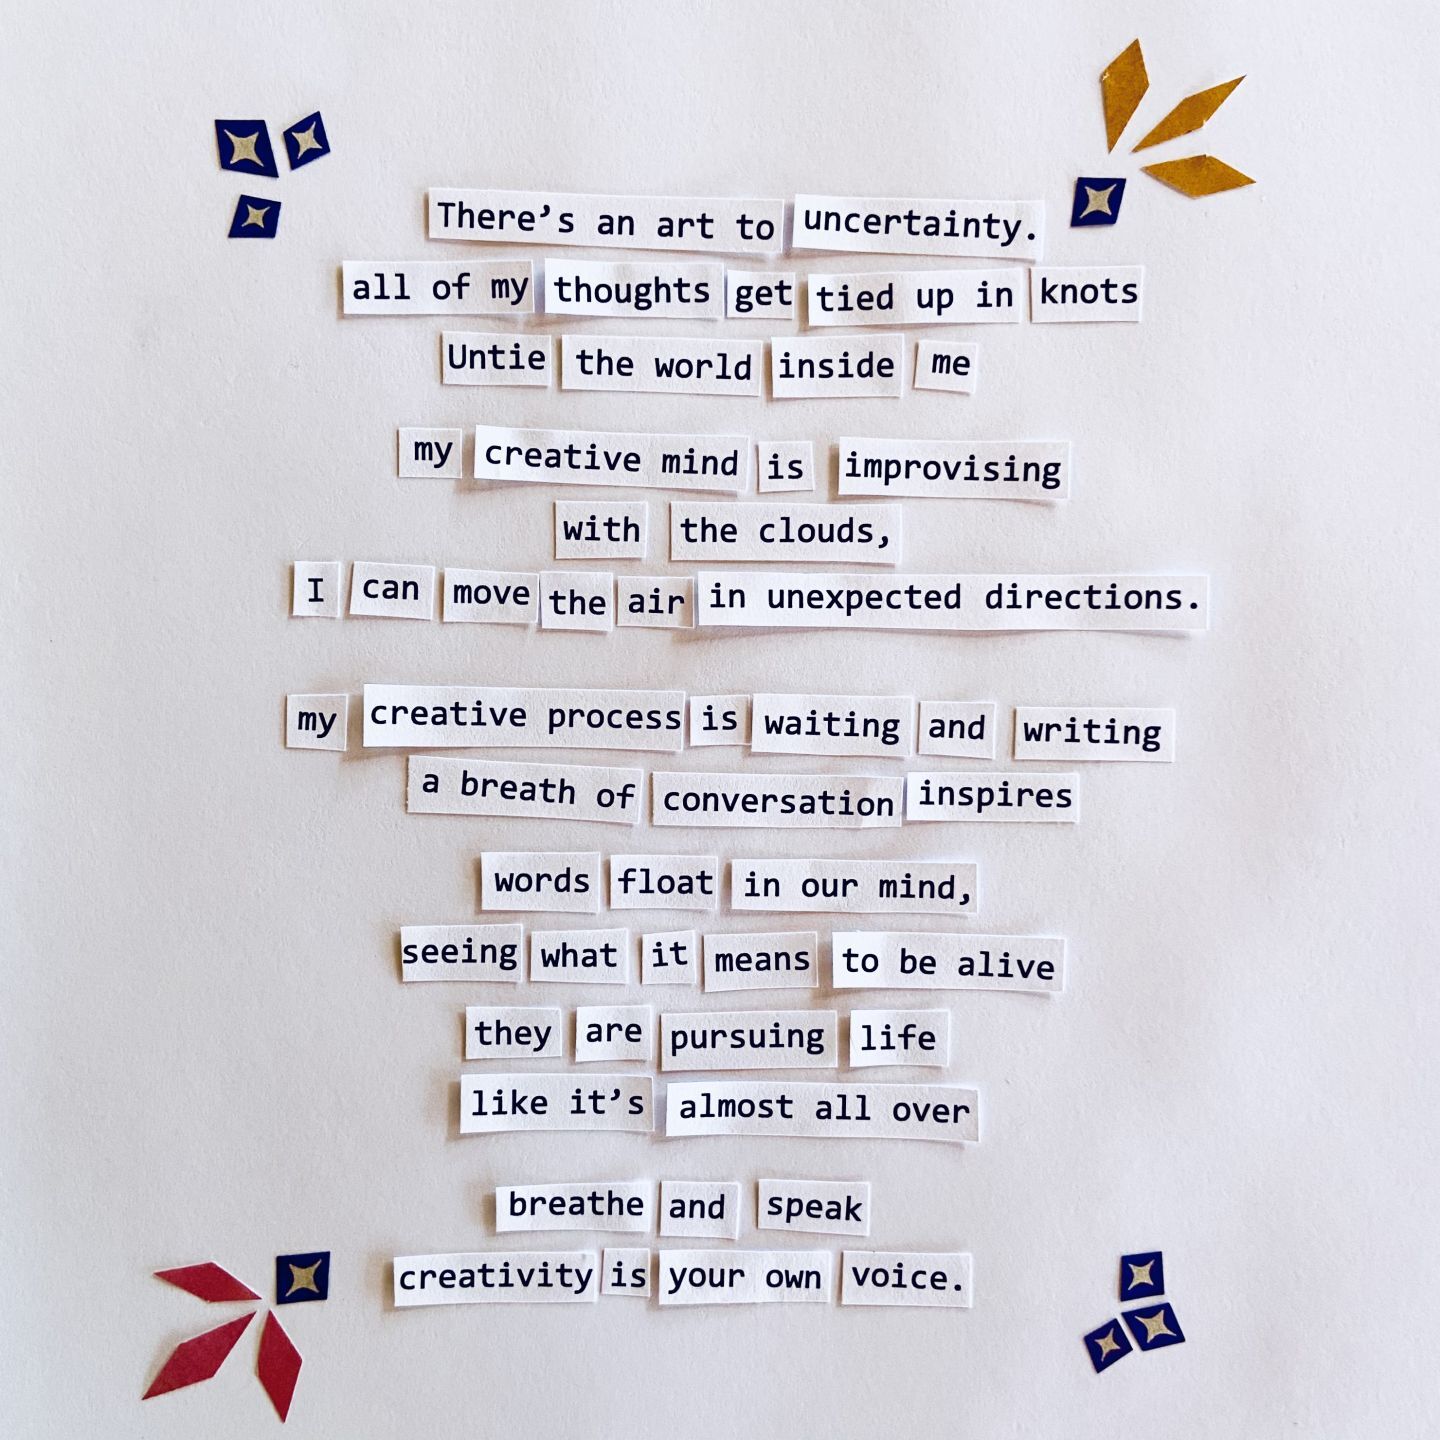 There’s an art to uncertainty.
all of my thoughts get tied up in knots
Untie the world inside me
my creative mind is improvising
with the clouds,
I can move the air in unexpected directions.
my creative process is waiting and writing
a breath of conversation inspires
words float in our mind,
seeing what it means to be alive
they are pursuing life
like it’s almost all over
breathe and speak
creativity is your own voice.